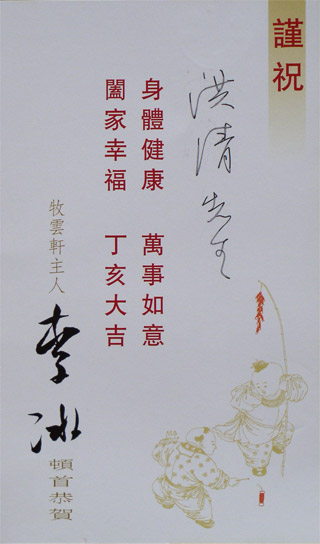 謹祝
洪清先生
身體健康 萬事如意
闔家幸福 丁亥大吉
牧雲軒主人
李冰
頓首恭賀